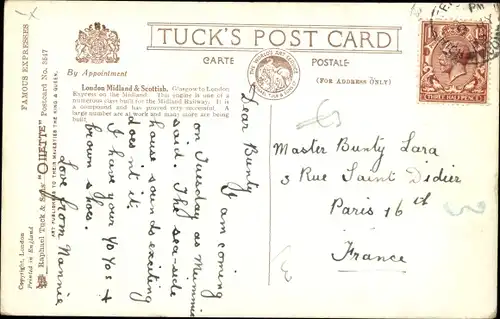 TUCK'S POST CARD
CARTE POSTALE
(FOR ADDRESS ONLY)
By Appointment
London Midland & Scottish. Glasgow to London
Express on the Midland. This engine is one of a
numerous class built for the Midland Railway. It is
a compound and has proved very successful. A
large number are at work and many more are on order.
FAMOUS EXPRESSES
Postcard No. 3547
Raphael Tuck & Sons' "OILETTE"
ART PUBLISHERS TO THEIR MAJESTIES THE KING & QUEEN.
Copyright, London
Printed in England
THE WORLD'S ART SERVICE
PM
THREE HALFPENCE
Dear Bunty
I am coming
on Tuesday as Mummie
said. The sea-side
house sounds exciting
does nt it.
I have your Yo Yos +
brown shoes.
Love from Nannie
Master Bunty Lara
3 Rue Saint Didier
Paris 16 e
France